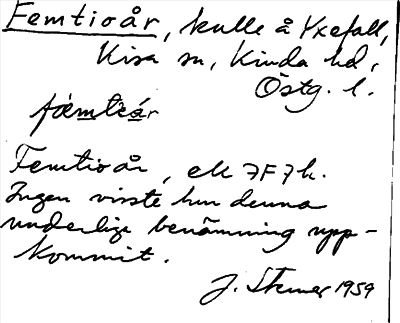 Femtioår, kulle å Yxefall,
Kisa sn, Kinda hd,
Östg. l.
fæmtiár
Femtioår, ek 7F7h.
Ingen visste hur denna
underliga benämning upp-
kommit.
J. Stemer 1959